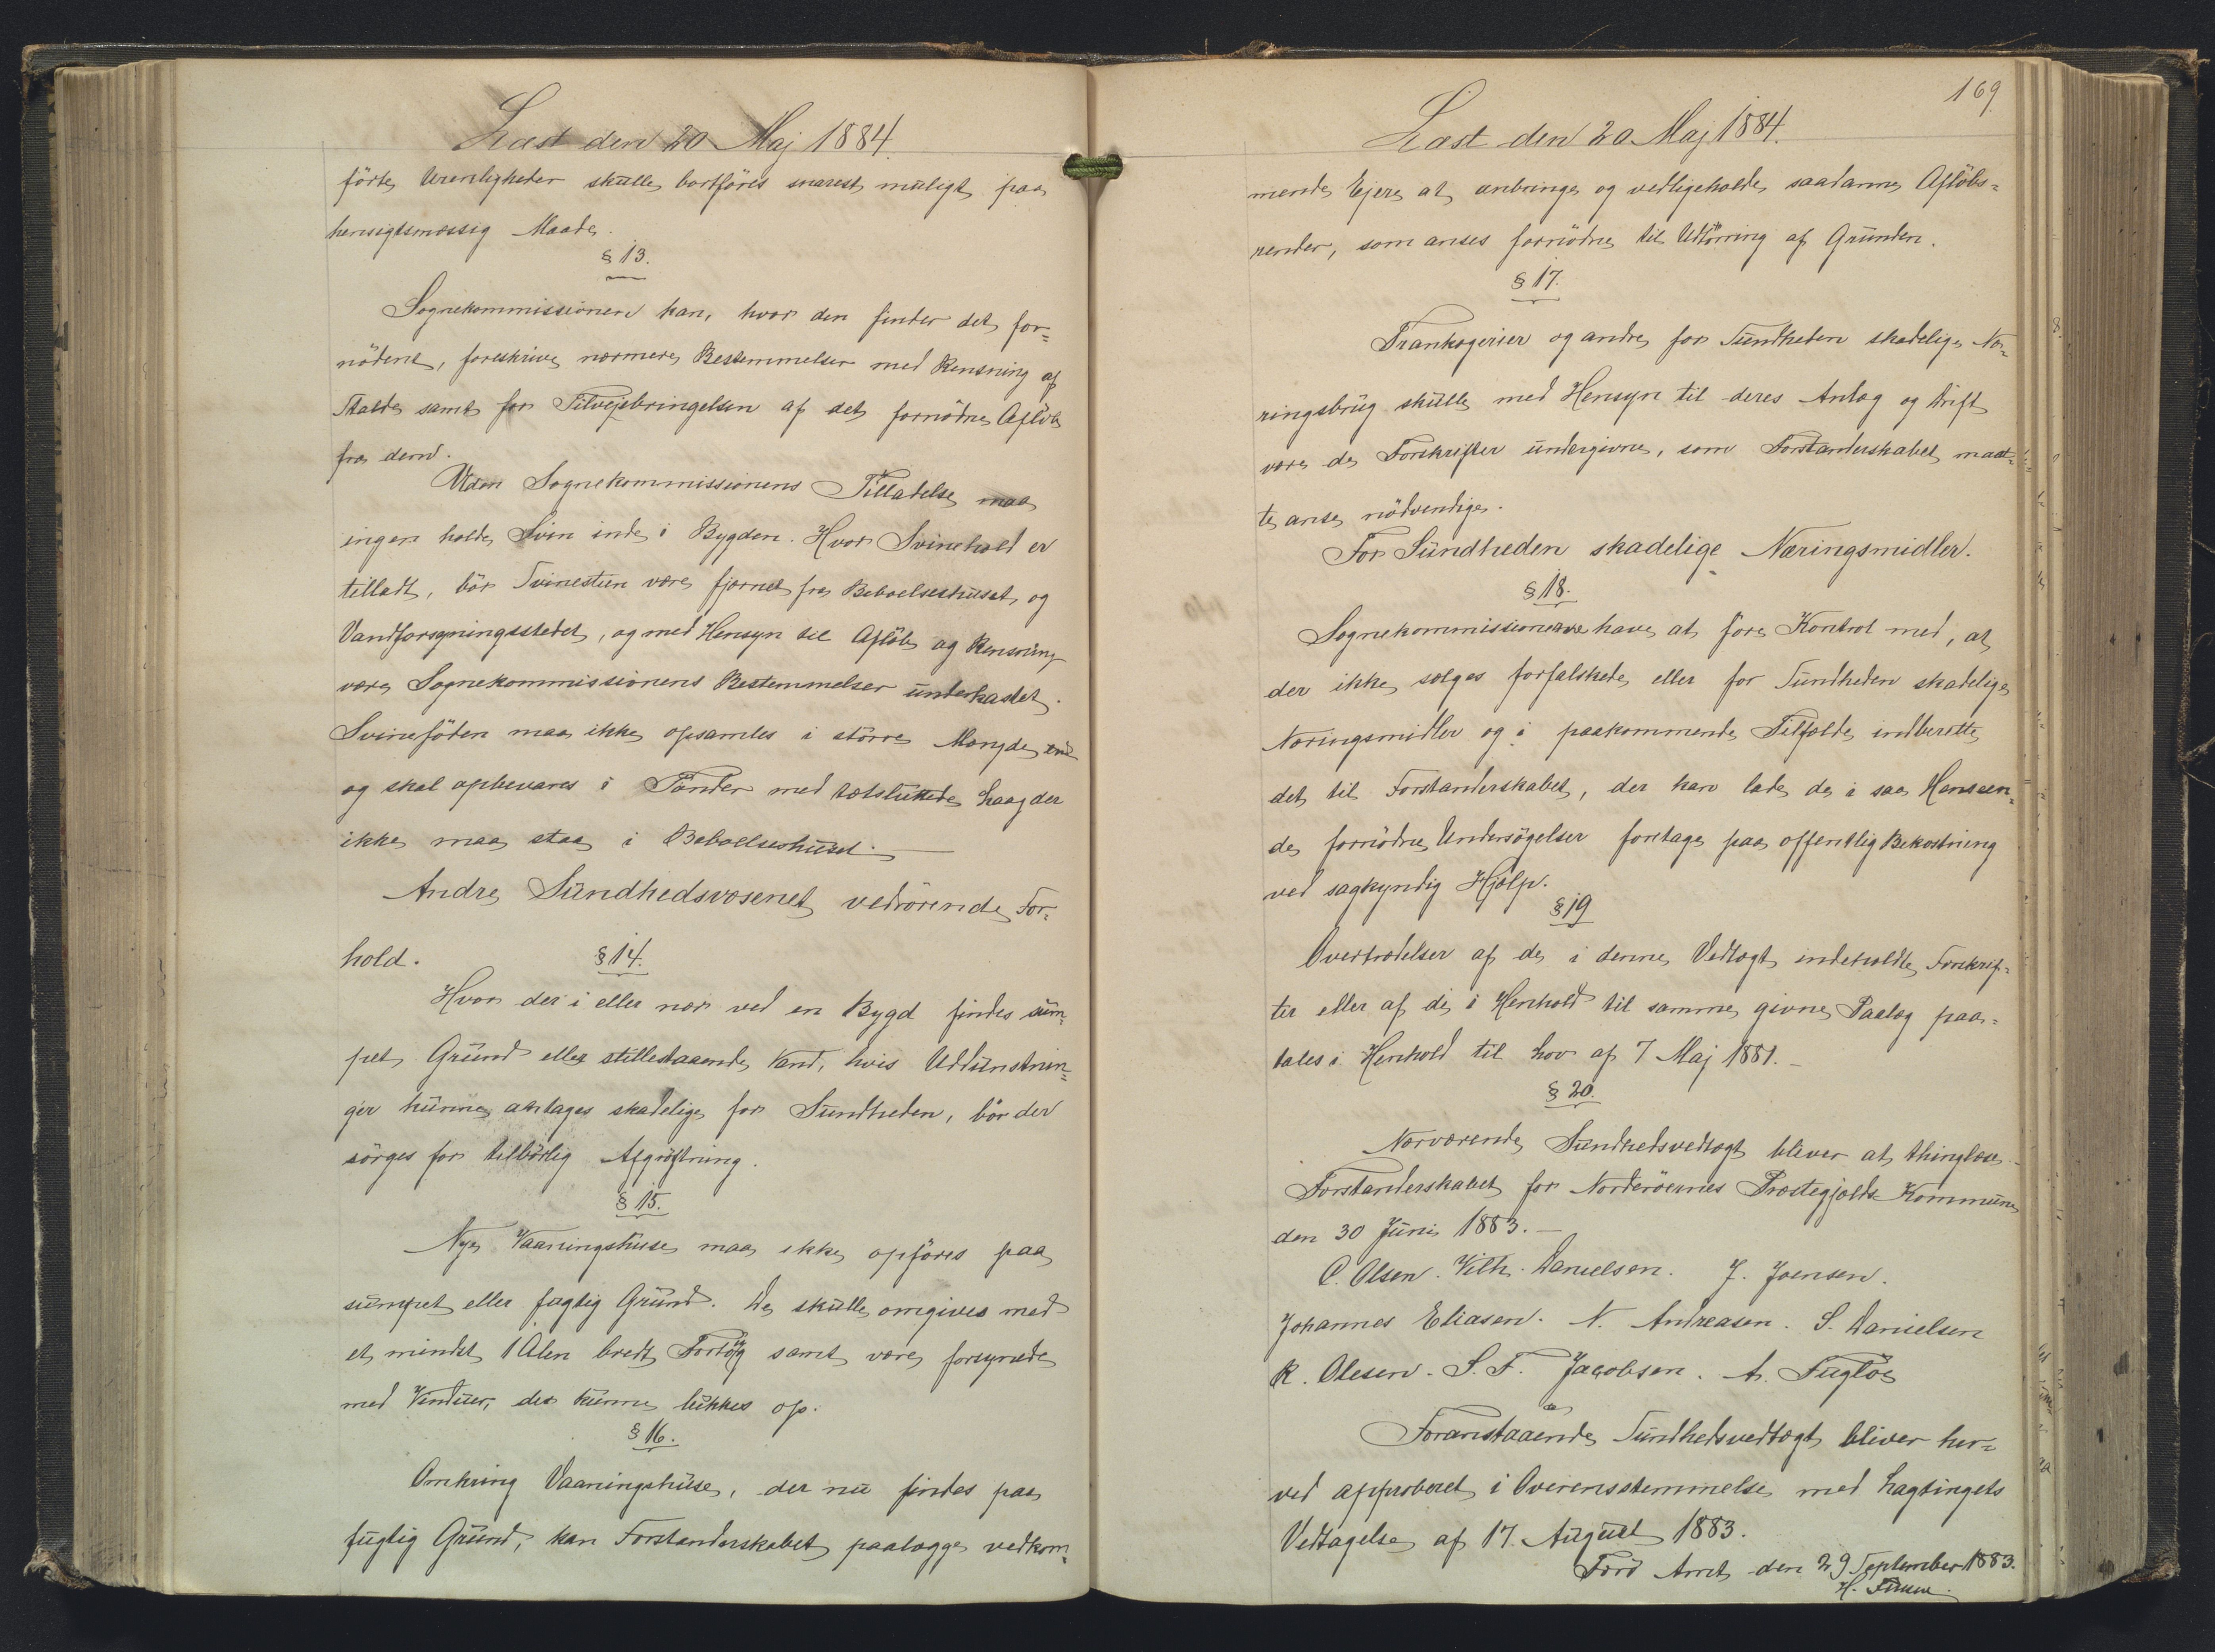 Læst den 20 Maj 1884.
förte Urenligheder skulle bortföres snarest muligt paa
hensigtsmæssig Maade.
§ 13.
Sognekommissionen kan, hvor den finder det for=
nödent, foreskrive nærmere Bestemmelser med Rensning af
Stalde samt for Tilvejebringelsen af det fornödne Aflöb
fra dem.
Uden Sognekommissionens Tilladelse maa
ingen holde Svin inde i Bygden. Hvor Svinehold er
tilladt, bör Svinestien være fjernet fra Beboelseshuset og
Vandforsyningsstedet, og med Hensyn til Aflöb og Rensning
være Sognekommissionens Bestemmelser underkastet.
Svineföden maa ikke opsamles i större Mængde
og skal opbevares i Tönder med tætsluttede Laag der
ikke maa staa i Beboelseshuset.
Andre Sundhedsvæsenet vedrörende For=
hold.
§ 14.
Hvor der i eller nær ved en Bygd findes sum=
pet Grund eller stillestaaende Vand, hvis Uddunstnin=
ger kunne antages skadelige for Sundheden, bör der
sörges for tilbörlig Afgröftning.
§ 15.
Nye Vaaningshuse maa ikke opföres paa
sumpet eller fugtig Grund. De skulle omgives med
et mindst 1 Alen bredt Fortög samt være forsynede
med Vinduer, der kunne lukkes op.
§ 16.
Omkring Vaaningshuse, der nu findes paa
fugtig Grund, kan Forstanderskabet paalægge vedkom=
169
Læst den 20 Maj 1884.
mende Ejere at anbringe og vedligeholde saadanne Aflöbs=
render, som anses fornödne til Udtörring af Grunden.
§ 17.
Trankogerier og andre for Sundheden skadelige Næ=
ringsbrug skulle med Hensyn til deres Anlæg og Drift
være de Forskrifter undergivne, som Forstanderskabet maat=
te anse nödvendige.
For Sundheden skadelige Næringsmidler.
§ 18.
Sognekommissionerne have at före Kontrol med, at
der ikke sælges forfalskede eller for Sundheden skadelige
Næringsmidler og i paakommende Tilfælde indberette
det til Forstanderskabet, der kan lade de i saa Henseen=
de fornödne Undersögelser foretage paa offentlig Bekostning
ved sagkyndig Hjælp.
§ 19
Overtrædelser af de i denne Vedtægt indeholdte Forskrif=
ter eller af de i Henhold til samme givne Paalæg paa=
tales i Henhold til Lov af 7 Maj 1881.
§ 20.
Nærværende Sundhedsvedtægt bliver at thinglæse.
Forstanderskabet for Norderöernes Præstegjælds Kommune
den 30 Juni 1883.
C. Olsen. Vilh. Danielsen. J. Joensen.
Johannes Eliasen. N. Andreasen. S. Danielsen
R. Olesen. S. F. Jacobsen. A. Fuglöe
Foranstaaende Sundhedsvedtægt bliver her=
ved approberet i Overensstemmelse med Lagtingets
Vedtagelse af 17. August 1883.
Færö Amt den 29 September 1883.
H. Finsen.